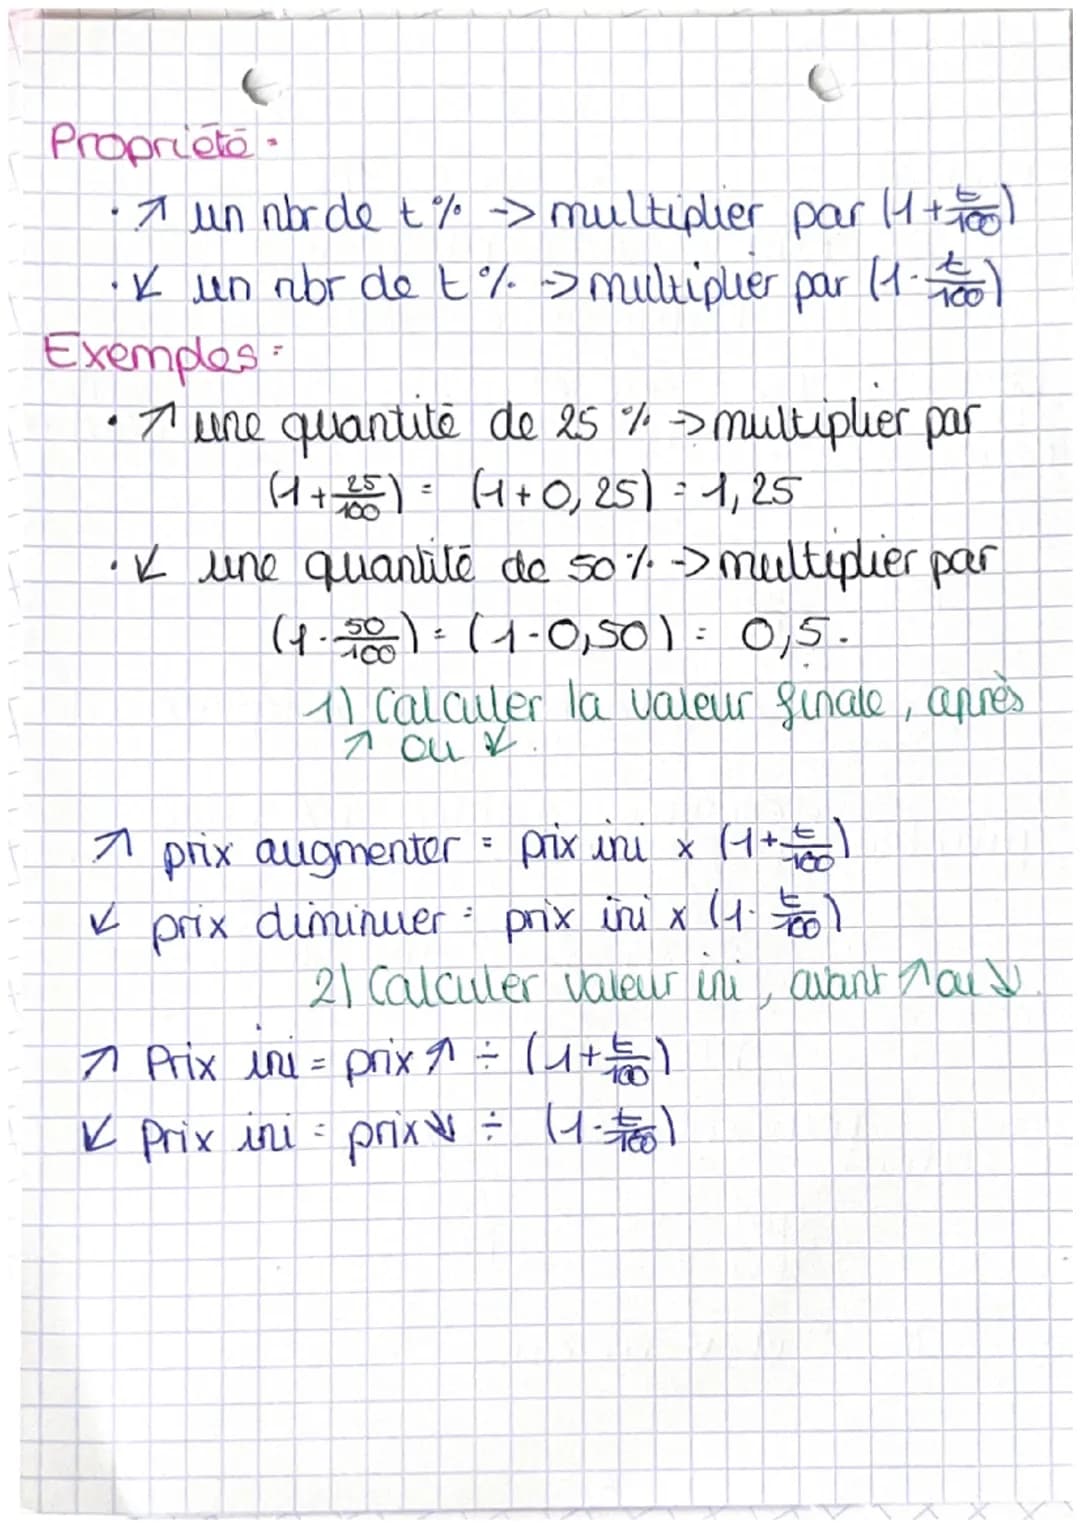 Propriété :
· ↗ un nbr de t% -> multiplier par (1+t/100)
· ↙ un nbr de t% -> multiplier par (1-t/100)
Exemples :
· ↗ une quantité de 25 % -> multiplier par
(1+25/100) = (1+0,25) = 1,25
· ↙ une quantité de 50% -> multiplier par
(1-50/100) = (1-0,50) = 0,5.
1) Calculer la valeur finale, après
↗ ou ↙.
↗ prix augmenter = prix ini x (1+t/100)
↙ prix diminuer = prix ini x (1-t/100)
2) Calculer valeur ini, avant ↗ ou ↘.
↗ Prix ini = prix ↗ ÷ (1+t/100)
↙ Prix ini = prix ↘ ÷ (1-t/100)